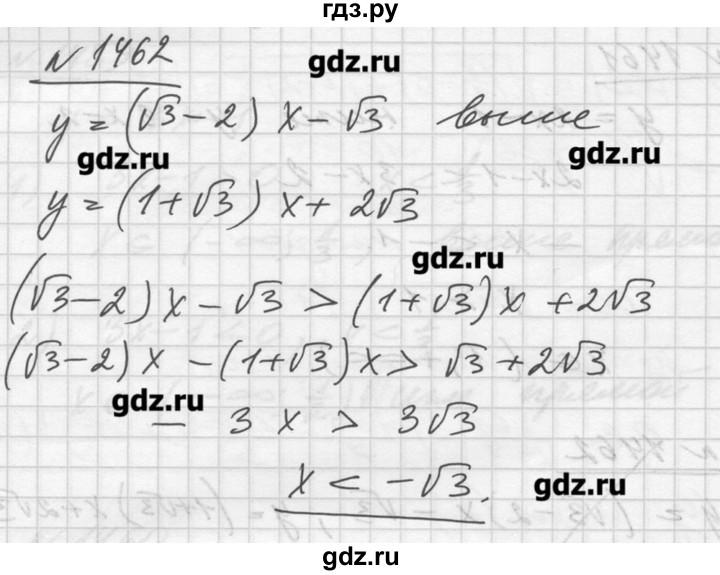 гдз.ру
№ 1462
gdz.ru
y = (√3 - 2) x - √3 выше
gdz.ru gdz.ru
y = (1 + √3) x + 2√3
gdz.ru
(√3 - 2) x - √3 > (1 + √3) x + 2√3
(√3 - 2) x - (1 + √3) x > √3 + 2√3
gdz.ru
- 3 x > 3√3
x < -√3.
gdz.ru
gdz.ru